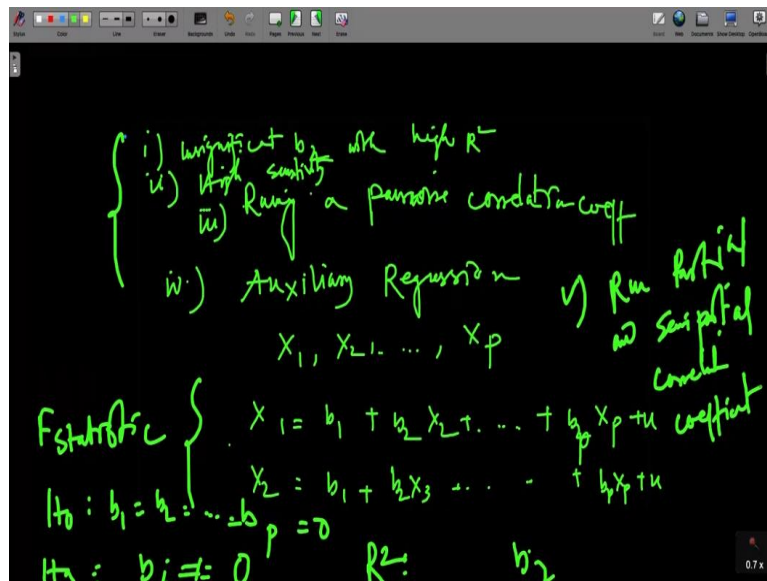 Stylus Color Line Eraser Backgrounds Undo Redo Pages Previous Next Erase Board Web Documents Show Desktop OpenBoard
i) insignificant b2 with high R²
ii) High sensitivity
iii) Runing a pairwise correlation coeff
iv) Auxiliary Regression
v) Run Partial
and Semi partial
correlat
coefficient
X1, X2, ..., Xp
F statistic { X1 = b1 + b2 X2 + .... + bp Xp + u
X2 = b1 + b2X3 .... + bpXp + u
H0 : b1 = b2 = .... bp = 0
Ha : bi ≠ 0 R²: b2
0.7 x